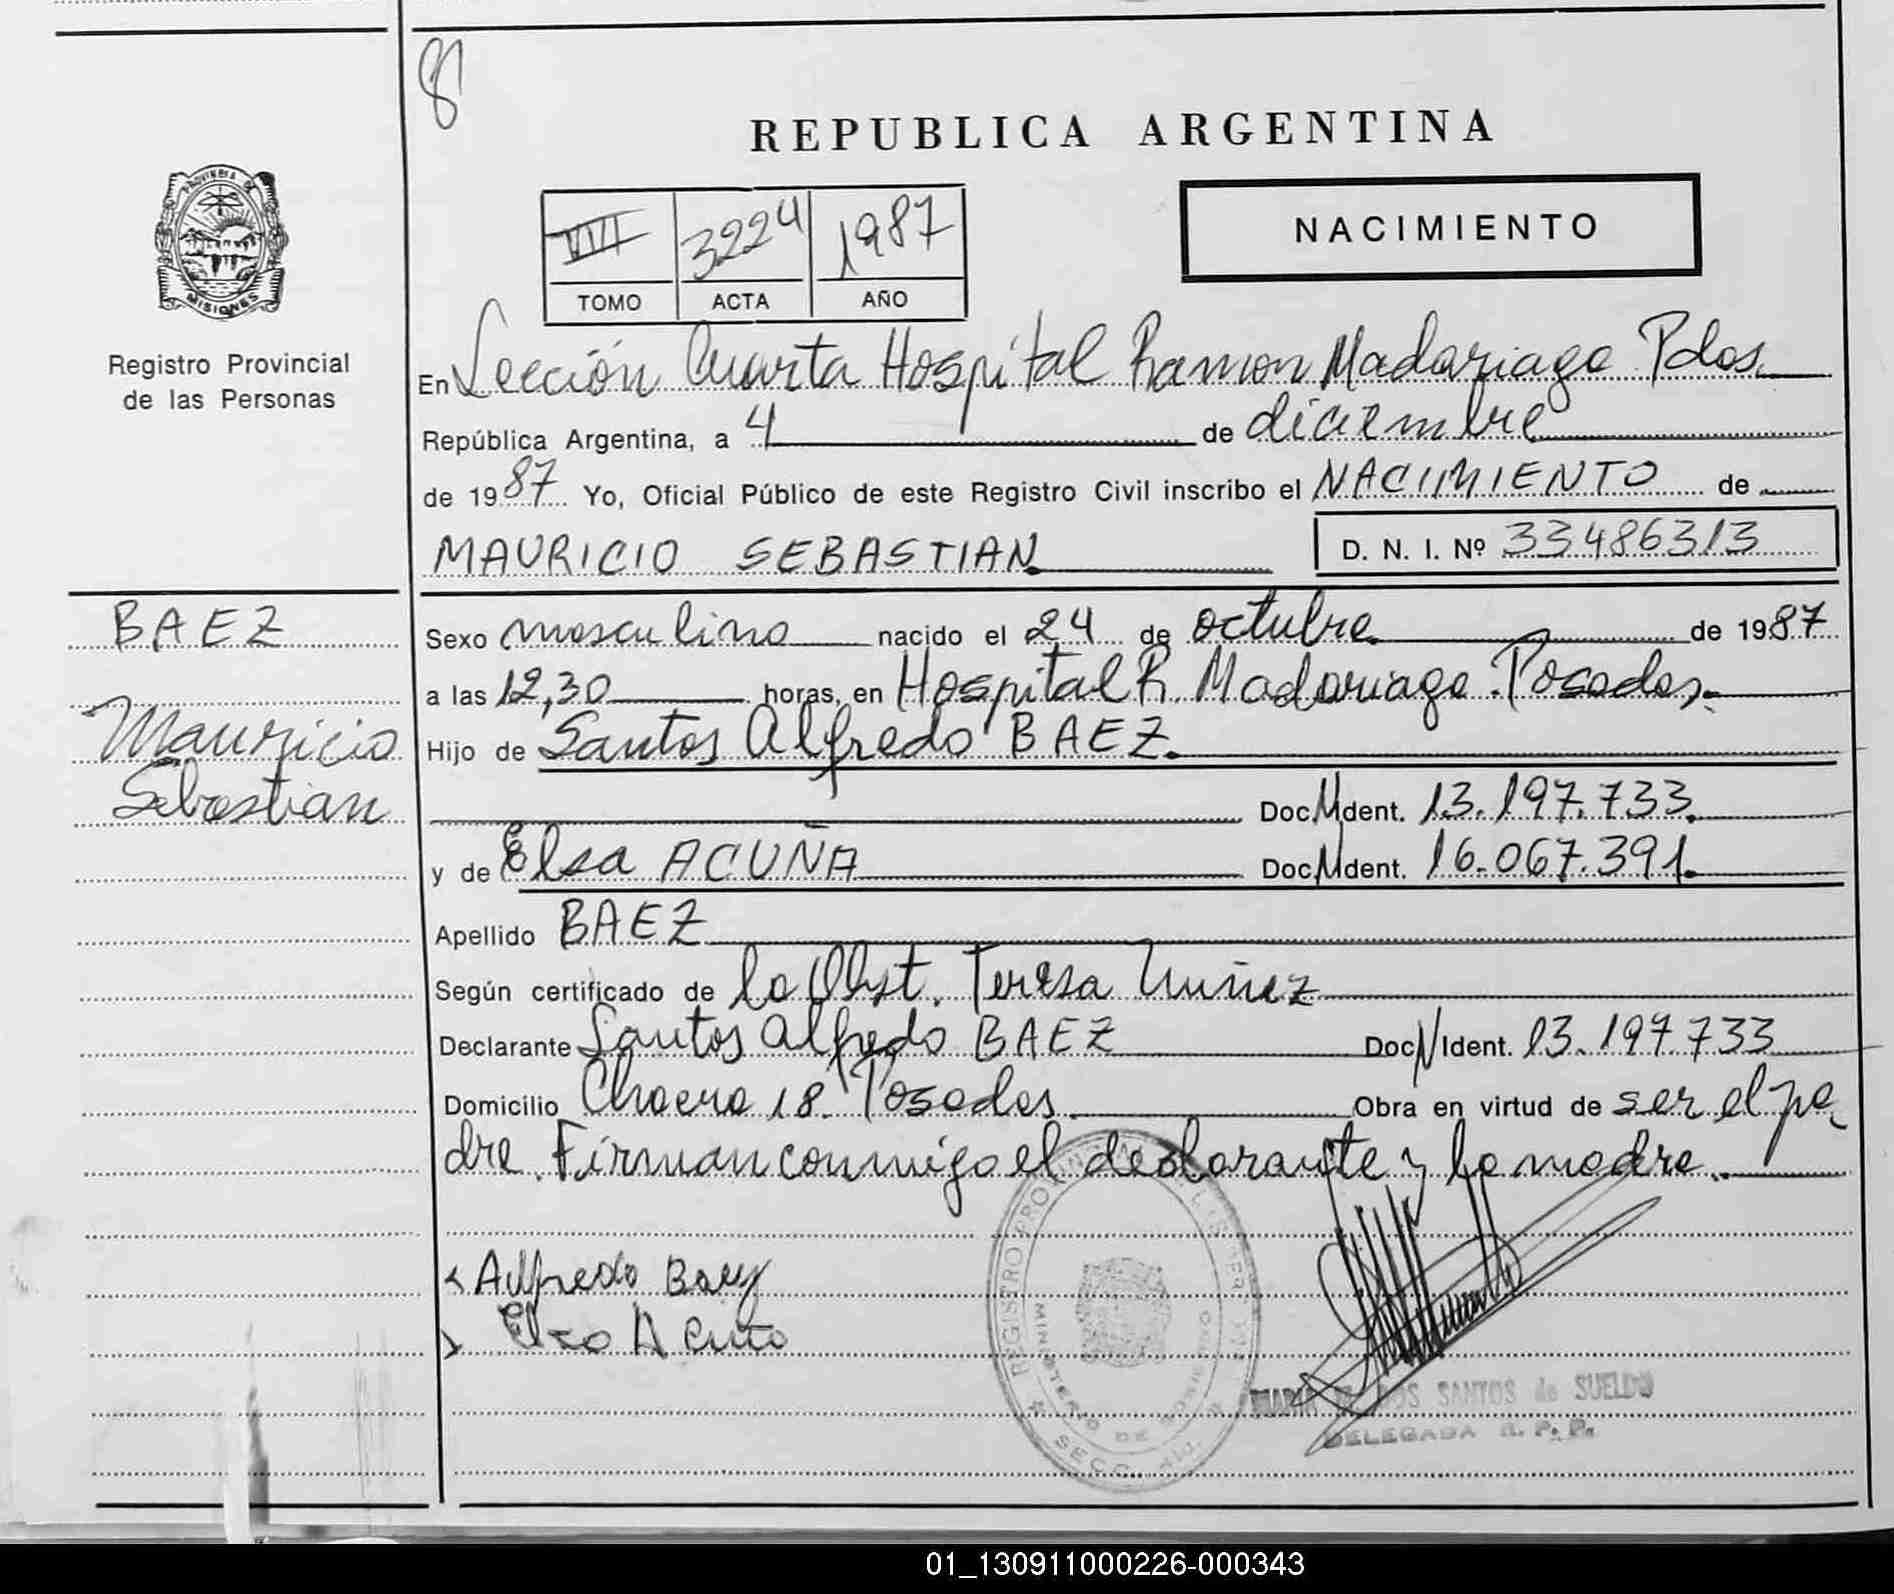 8
REPUBLICA ARGENTINA
PROVINCIA DE
MISIONES
Registro Provincial
de las Personas
VIII 3224 1987
TOMO ACTA AÑO
NACIMIENTO
En Sección Cuarta Hospital Ramon Madariaga Pdas.
República Argentina, a 4 de diciembre
de 1987 Yo, Oficial Público de este Registro Civil inscribo el NACIMIENTO de
MAURICIO SEBASTIAN D. N. I. Nº 33486313
BAEZ
Mauricio
Sebastian
Sexo masculino nacido el 24 de octubre de 1987
a las 12,30 horas, en Hospital R. Madariaga Posadas.
Hijo de Santos Alfredo BAEZ.
Doc. Ident. 13.197.733.
y de Elsa ACUÑA Doc. Ident. 16.067.391.
Apellido BAEZ
Según certificado de la Obst. Teresa Nuñez
Declarante Santos Alfredo BAEZ Doc. Ident. 13.197.733
Domicilio Chacra 18. Posadas. Obra en virtud de ser el pa
dre. Firman conmigo el declarante y la madre.
Alfredo Baez
Elsa Acuña
REGISTRO PROVINCIAL
MINISTERIO DE
SECC.
DOS SANTOS de SUELDO
DELEGADA R. P. P.
01_130911000226-000343